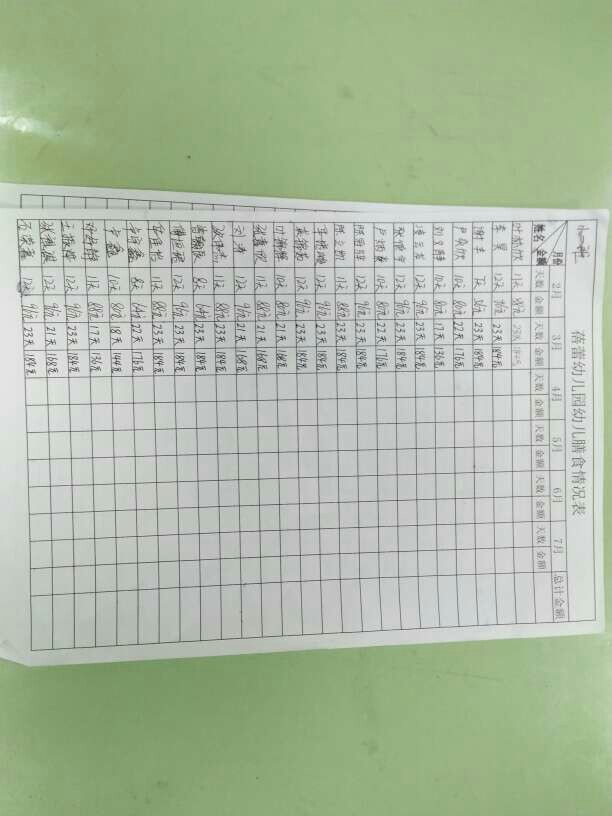 蓓蕾幼儿园幼儿膳食情况表
小一班
月份 2月 3月 4月 5月 6月 7月 总计金额
姓名 金额 天数 金额 天数 金额 天数 金额 天数 金额 天数 金额 天数 金额
11天 88元 23天 184元
李昊 12天 96元 23天 184元
谢丰 7天 56元 23天 184元
卢奕欣 10天 80元 22天 176元
10天 80元 17天 136元
凌云若 12天 96元 23天 184元
耿俊宇 12天 96元 23天 184元
10天 80元 22天 176元
12天 96元 23天 184元
陈立凯 11天 88元 23天 184元
12天 96元 23天 184元
12天 96元 23天 184元
10天 80元 21天 168元
11天 88元 21天 168元
刘涛 12天 96元 21天 168元
11天 88元 23天 184元
8天 64元 23天 184元
12天 96元 23天 184元
11天 88元 23天 184元
8天 64元 22天 176元
卢鑫 10天 80元 18天 144元
11天 88元 17天 136元
12天 96元 23天 184元
12天 96元 21天 168元
12天 96元 23天 184元